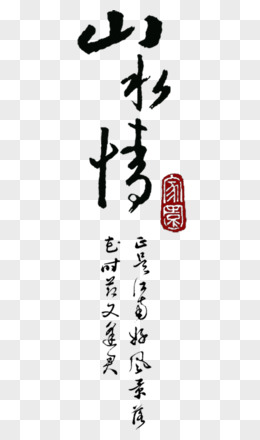 山水情
家园
正是江南好风景落
花时节又逢君